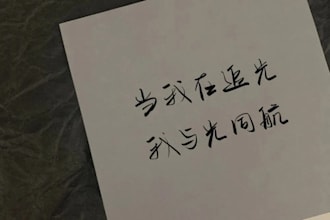 当我在追光
我与光同航